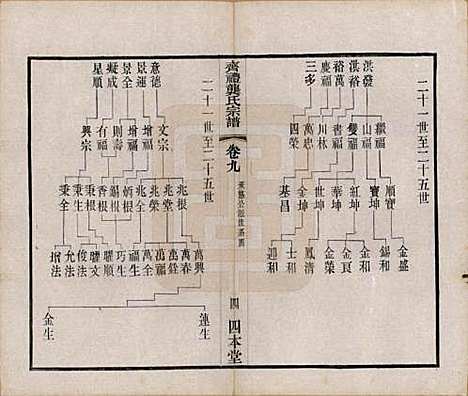 二十一世至二十五世
洪發 洪裕 裕萬 慶福 三多
繼福 山福 雙福 書福 川林 萬忠 四榮
順寶 寶坤 紅坤 華坤 世坤 金坤 基昌
金盛 錫和 金和 金良 金榮 鳳清 士和 迎和
齊禮龔氏宗譜
卷九
四
四本堂
二十一世至二十五世
意德 景運 景全 凝成 星順
文宗 增福 增福 則壽 有福 興宗
兆根 兆堂 兆榮 兆全 炳根 錫根 春根 秉根 秉生 秉全
萬興 萬春 萬銓 萬福 萬全 福生 巧生 曜順 曜文 俊法 允法 增法
連生 金生